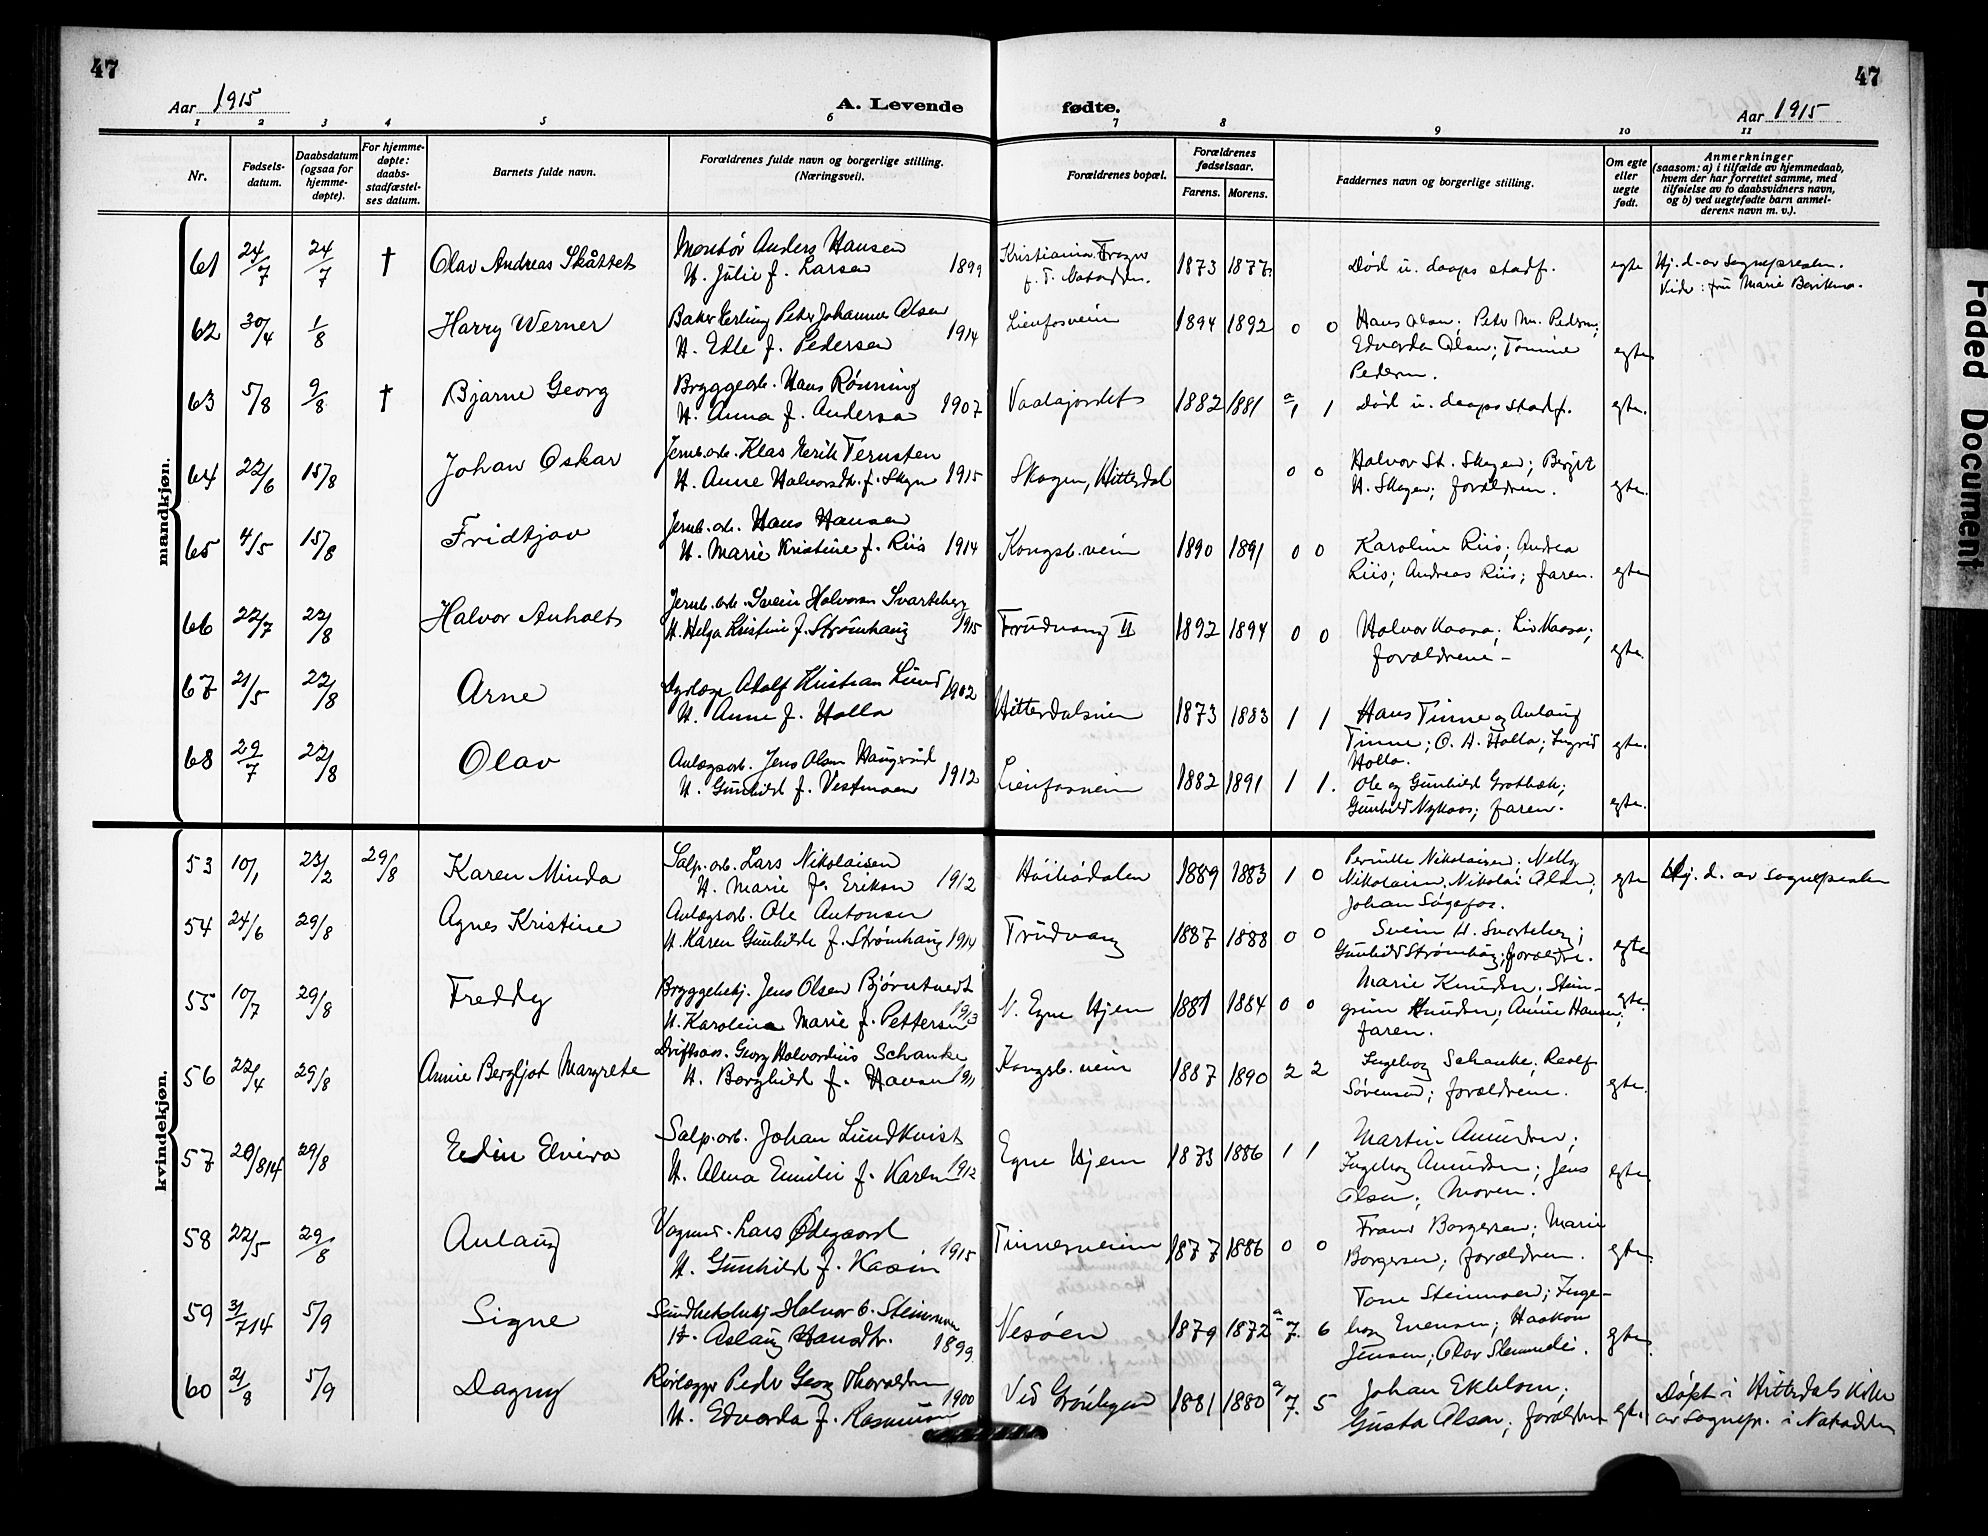 47
47
Aar 1915
A. Levende fødte.
Aar 1915
1 2 3 4 5 6 7 8 9 10 11
Nr.
Fødsels-
datum.
Daabsdatum
(ogsaa for
hjemme-
døpte).
For hjemme-
døpte:
daabs-
stadfæstel-
ses datum.
Barnets fulde navn.
Forældrenes fulde navn og borgerlige stilling.
(Næringsvei).
Forældrenes bopæl.
Forældrenes
fødselsaar.
Farens. Morens.
Faddernes navn og borgerlige stilling.
Om egte
eller
uegte
født.
Anmerkninger
(saasom: a) i tilfælde av hjemmedaab,
hvem der har forrettet samme, med
tilføielse av to daabsvidners navn,
og b) ved uegtefødte barn anmel-
derens navn m. v.).
mandkjøn.
61 24/7 24/7 † Olav Andreas Skåttet Montør Anders Hansen
H. Julie f. Larsen 1899 Kristiania 1873 1877 Død u. daaps stadf. egte Hj. d. av sognepresten.
62 30/4 1/8 Harry Werner Baker Erling Peter Johannes Olsen
H. Edle f. Pedersen 1914 Lienfosveien 1894 1892 0 0 Hans Olsen; Peder M. Pedersen;
Edvarda Olsen; Tomine
Pedersen. egte
63 5/8 9/8 † Bjarne Georg Bryggearb. Hans Rønning
H. Anna f. Andersen 1907 Vaalajordet 1882 1881 a 1 1 Død u. daaps stadf. egte.
64 22/6 15/8 Johan Oskar Jernb. arb. Klas Henrik Fernsten
H. Anne Halvorsdtr. f. Skogen 1915 Skogen, Hitterdal 0 0 Halvor St. Skogen; Bergit
H. Skogen; forældrene. egte.
65 4/5 15/8 Fridtjov Jernb. arb. Hans Hansen
H. Marie Kristine f. Riis 1914 Kongsb. veien 1890 1891 0 0 Karoline Riis; Andrea
Riis; Andreas Riis; faren. egte
66 22/7 22/8 Halvor Anholt Jernb. arb. Svein Halvorsen Svarteberg
H. Helga Kristine f. Strømhaug 1915 Trudvang II 1892 1894 0 0 Halvor Kaasa; Liv Kaasa;
forældrene - egte.
67 21/5 22/8 Arne Dyrlæge Adolf Kristian Lund 1902
H. Anne f. Holla Hitterdalsveien 1873 1883 1 1 Hans Tinne og Aslaug
Tinne; O. H. Holla; Ingrid
Holla. egte.
68 29/7 22/8 Olav Anlægsarb. Jens Olsen Haugerud
H. Gunhild f. Vestmoen 1912 Lienfosveien 1882 1891 1 1. Ole og Gunhild Grotbæk;
Gunhild Nykaas; faren. egte.
kvindekjøn.
53 10/1 23/2 29/8 Karen Minda Salp. arb. Lars Nikolaisen
H. Marie f. Eriksen 1912 Høibødalen 1889 1883 1 0 Pernille Nikolaisen; Nelly
Nikolaisen; Nikolai Olsen;
Johan Sagafos. egte Hj. d. av sognepresten
54 24/6 29/8 Agnes Kristine Anlægsarb. Ole Antonsen
H. Karen Gunhilde f. Strømhaug 1914 Trudvang 1887 1888 0 0 Svein H. Svarteberg;
Gunhild Strømhaug; forældre. egte
55 10/7 29/8 Freddy Bryggebetj. Jens Olsen Bjørntvedt
H. Karoline Marie f. Pettersen 1913 N. Egne Hjem 1881 1884 0 0 Marie Knudsen; Stein-
grim Knudsen; Annie Hansen;
faren. egte.
56 22/4 29/8 Annie Bergljot Margrete Driftsass. Georg Halvordius Schanke
H. Borghild f. Hansen 1911 Kongsb. veien 1887 1890 2 2 Ingeborg Schanke; Rolf
Sørensen; forældrene. egte.
57 20/8 14 29/8 Edin Elvira Salp. arb. Johan Lundkvist
H. Alma Emilie f. Karlsen 1912 Egne Hjem 1873 1886 1 1 Martin Amundsen;
Ingeborg Amundsen; Jens
Olsen; Moren. egte
58 22/5 29/8 Aslaug Vognm. Lars Ødegaard
H. Gunhild f. Kasin 1915 Tinnesveien 1877 1886 0 0 Frans Borgersen; Marie
Borgersen; forældrene. egte.
59 31/7 14 5/9 Signe Sundhetsbetj. Halvor O. Steinmoen
H. Aslaug Hansdtr. 1899 Vesøen 1879 1872 a 7. 6 Tone Steinmoen; Inge-
borg Evensen; Haakon
Jensen; Olav Slemmelie. egte
60 21/8 5/9 Dagny Rørlægger Peder Georg Thoraldsen
H. Edvarda f. Rasmussen 1900 Ved Grønlegen 1881 1880 a 7. 5 Johan Ekblom;
Gusta Olsen; forældrene egte. Døpt i Hitterdals Kirke
av sognepr. i Notodden
Faded Document